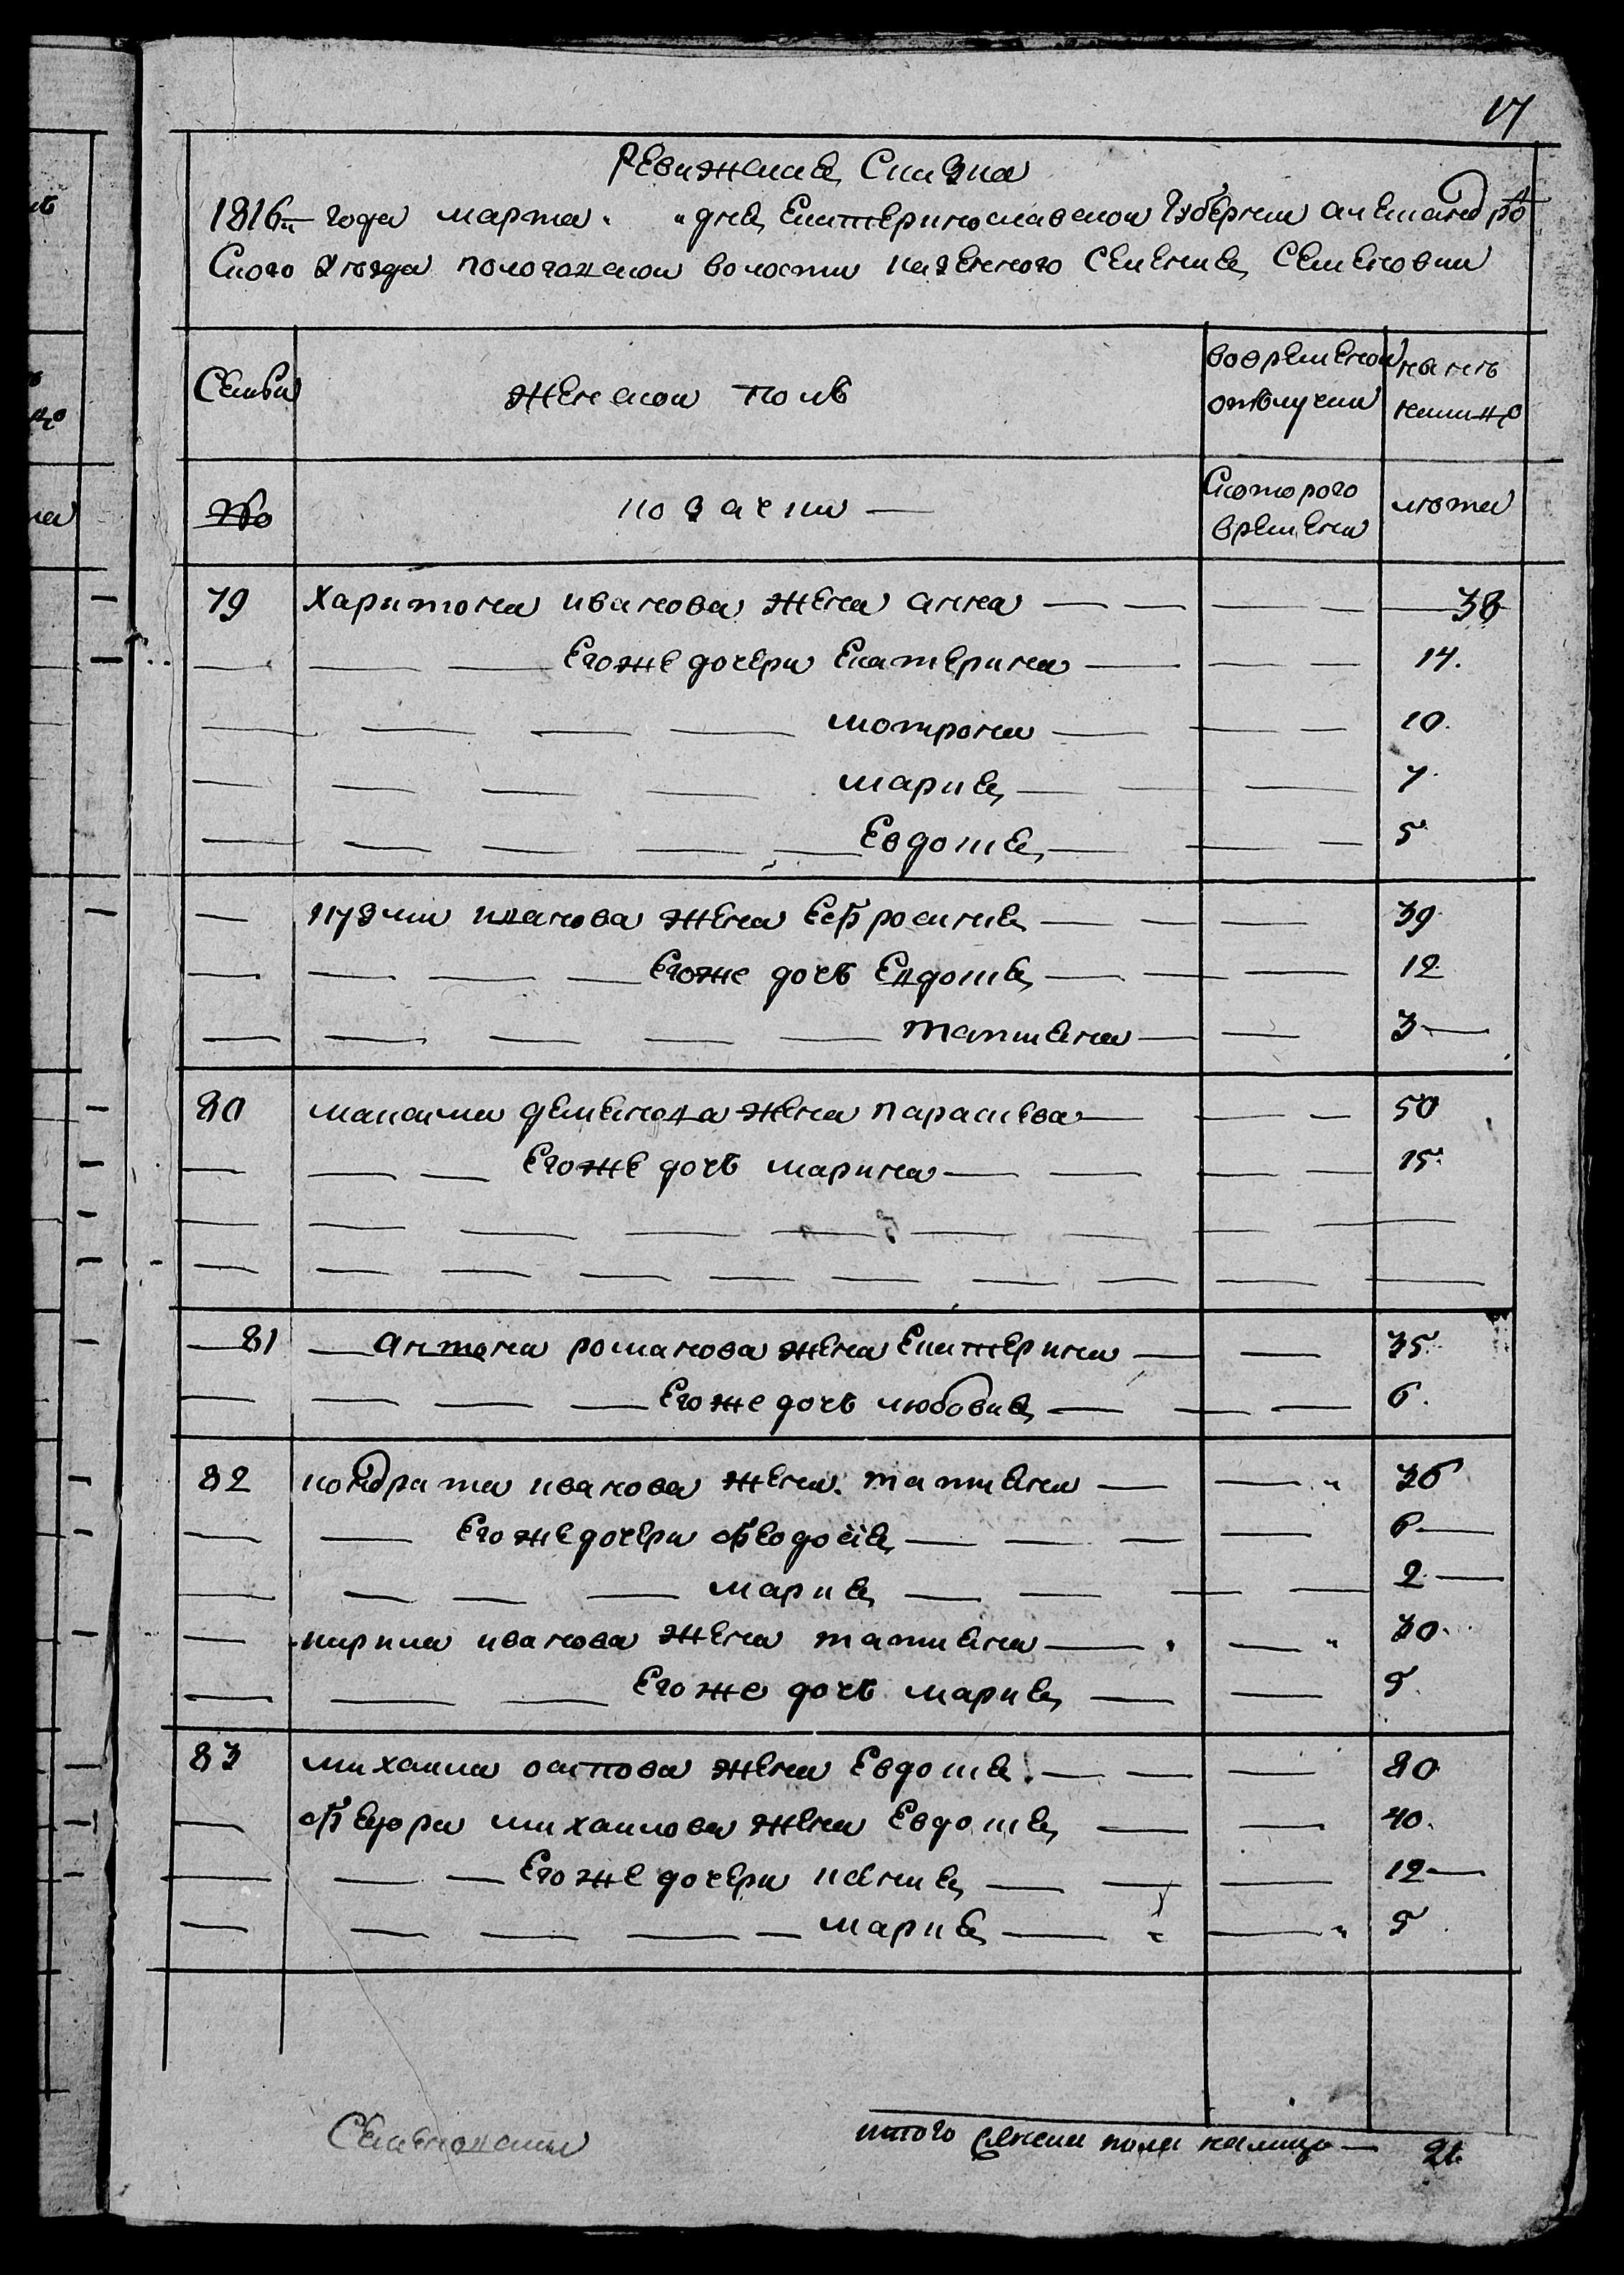 17
Ревижская Сказка
1816го года марта " " дня Екатеринославской Губернии александров
Ского уезда пологовской волости казенного Селения Семеновки
Семьи
женской полъ
вовременой отълучки
ныне налицо
№
казачки —
Скоторого времени
лета
79 харитона иванова жена анна — 38
Егоже дочери Екатерина — 14.
мотрона — 10.
мария — 7.
Евдокия — 5
кузмы иванова жена Ефросиния — 39
Егоже дочь Евдокия — 12
татияна — 3
80 максима деменкова жена параскева — 50
Егоже дочь марина — 15.
81 антона романова жена Екатерина — 35.
Егоже дочь любовия — 6.
82 кондрата иванова жена татияна — 36
Егоже дочери феодосія — 6
мария — 2
кирила иванова жена татияна — 30.
Егоже дочь мария — 5.
83 михаила осипова жена Евдокия — 80
феодора михаилова жена Евдокия — 40.
Егоже дочери ксения — 12
мария — 5
итого женска пола налицо — 21.